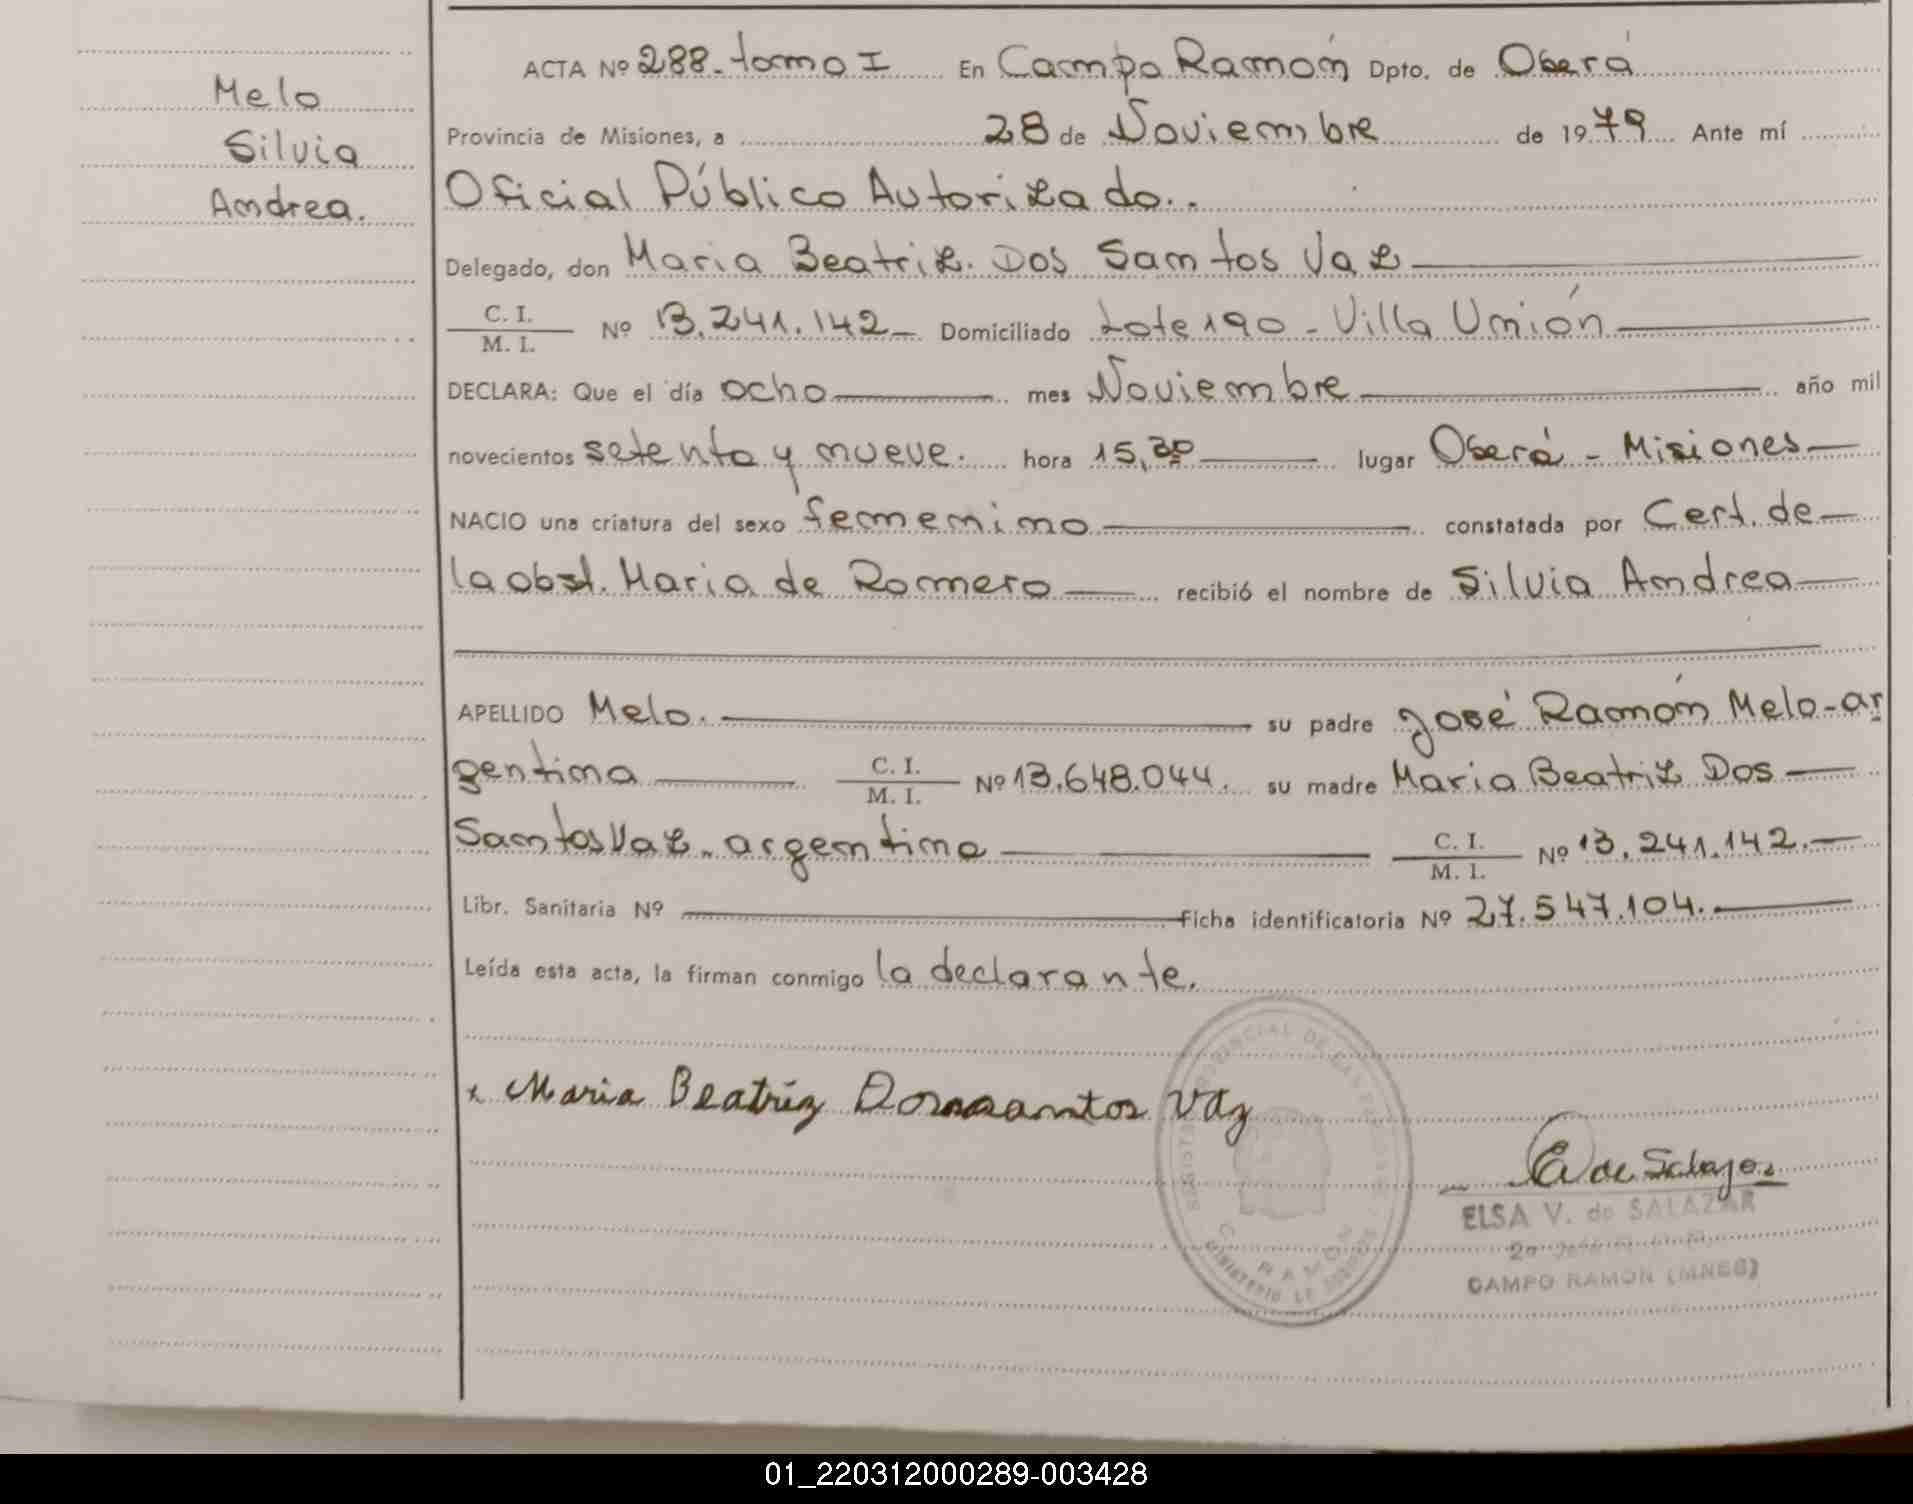 Melo
Silvia
Andrea.
ACTA Nº 288. tomo I En Campo Ramón Dpto. de Oberá
Provincia de Misiones, a 28 de Noviembre de 1979 Ante mí
Oficial Público Autorizado..
Delegado, don Maria Beatriz. Dos Santos Vaz
C. I.
M. I. Nº 13.241.142 Domiciliado Lote 190 - Villa Unión
DECLARA: Que el día ocho mes Noviembre año mil
novecientos setenta y nueve. hora 15,30 lugar Oberá - Misiones
NACIO una criatura del sexo femenino constatada por Cert. de
la obst. Maria de Romero recibió el nombre de Silvia Andrea
APELLIDO Melo. su padre José Ramón Melo-ar
gentina C. I. M. I. Nº 13.648.044. su madre Maria Beatriz Dos
Santos Vaz. argentina C. I. M. I. Nº 13.241.142.
Libr. Sanitaria Nº Ficha identificatoria Nº 27.547.104.
Leída esta acta, la firman conmigo la declarante.
x Maria Beatriz Dossantos Vaz
E de Salazar
ELSA V. de SALAZAR
CAMPO RAMON (MNES)
C. RAMON
01_220312000289-003428